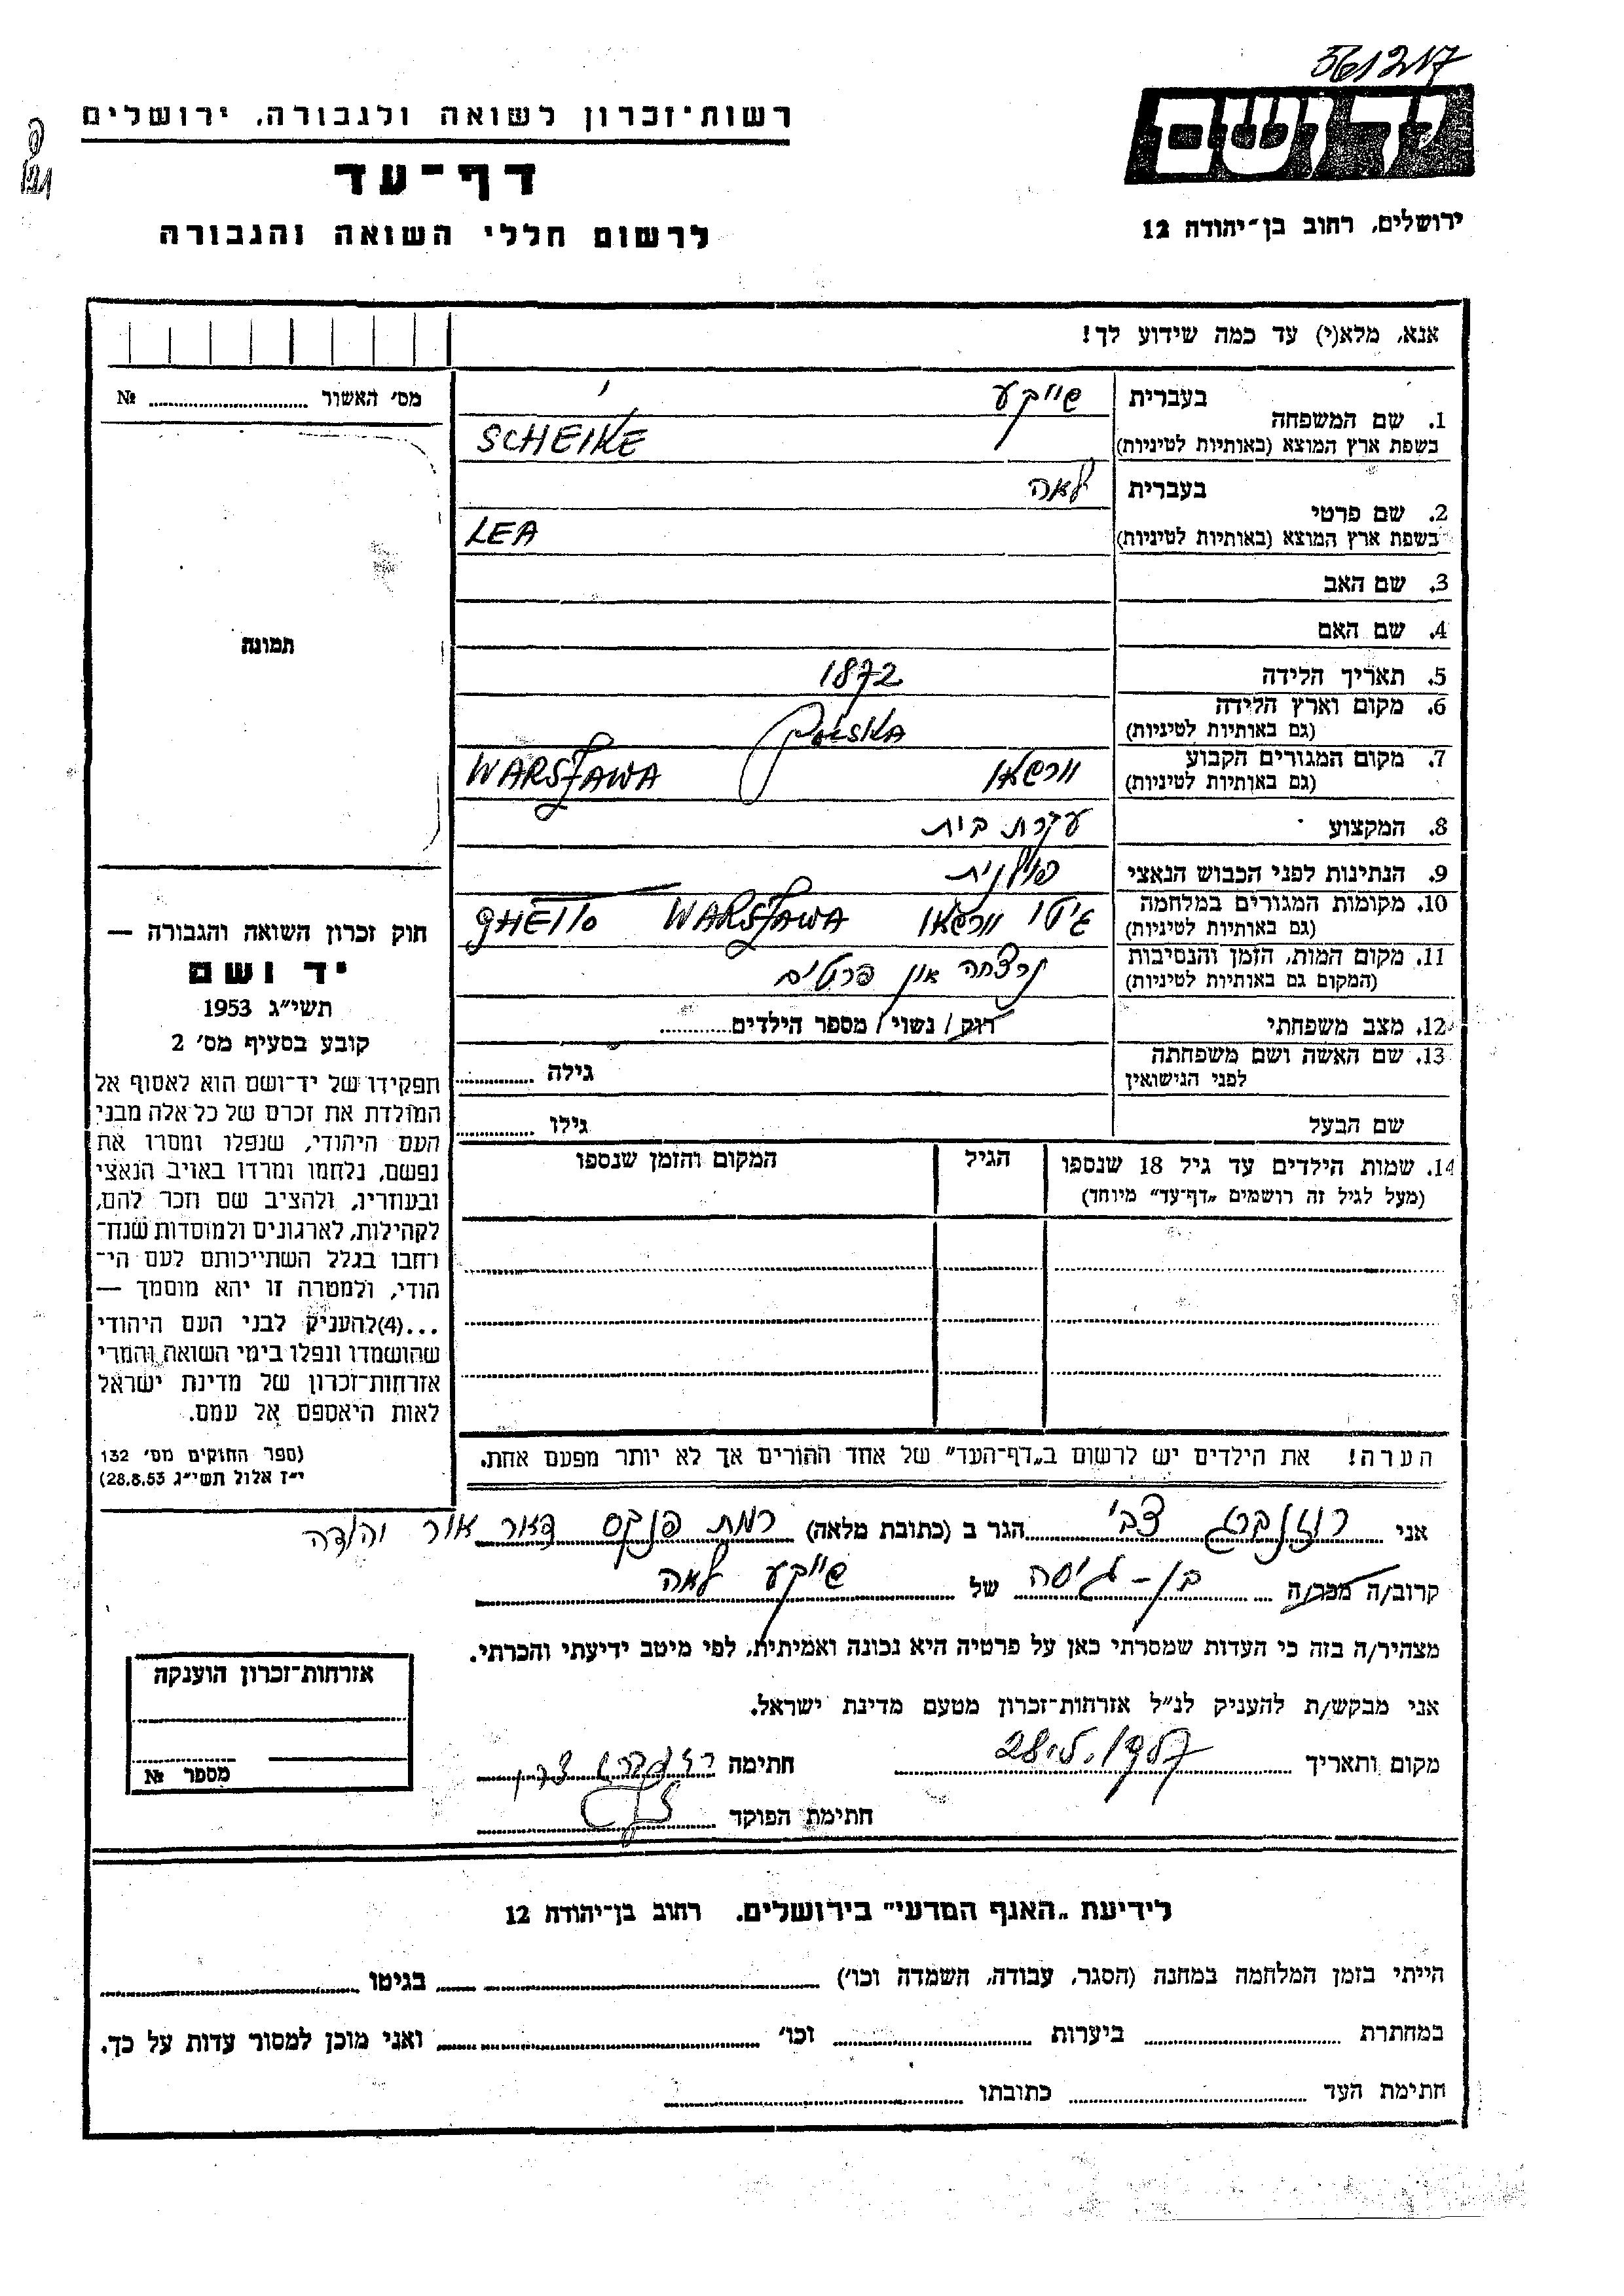 561217
יד ושם
ירושלים, רחוב בן־יהודה 12
רשות־זכרון לשואה ולגבורה, ירושלים
דף־עד
לרשום חללי השואה והגבורה
אנא, מלא(י) עד כמה שידוע לך!
מס׳ האשור ........ №
תמונה
1. שם המשפחה
בעברית שייקע
בשפת ארץ המוצא (באותיות לטיניות) SCHEIKE
2. שם פרטי
בעברית לאה
בשפת ארץ המוצא (באותיות לטיניות) LEA
3. שם האב
4. שם האם
5. תאריך הלידה 1872
6. מקום וארץ הלידה
(גם באותיות לטיניות) POLSKA
7. מקום המגורים הקבוע וורשאו WARSZAWA
(גם באותיות לטיניות)
8. המקצוע עקרת בית
9. הנתינות לפני הכבוש הנאצי פולנית
10. מקומות המגורים במלחמה גיטו וורשאו WARSZAWA GHETTO
(גם באותיות לטיניות)
11. מקום המות, הזמן והנסיבות נרצחה און פרטים
(המקום גם באותיות לטיניות)
12. מצב משפחתי רווק / נשוי / מספר הילדים........
13. שם האשה ושם משפחתה
לפני הנישואין גילה ........
שם הבעל גילו ........
14. שמות הילדים עד גיל 18 שנספו הגיל המקום והזמן שנספו
(מעל לגיל זה רושמים „דף־עד״ מיוחד)
הערה! את הילדים יש לרשום ב„דף־העד״ של אחד ההורים אך לא יותר מפעם אחת.
חוק זכרון השואה והגבורה —
יד ושם
תשי״ג 1953
קובע בסעיף מס׳ 2
תפקידו של יד־ושם הוא לאסוף אל
המולדת את זכרם של כל אלה מבני
העם היהודי, שנפלו ומסרו את
נפשם, נלחמו ומרדו באויב הנאצי
ובעוזריו, ולהציב שם וזכר להם,
לקהילות, לארגונים ולמוסדות שנח־
רבו בגלל השתייכותם לעם הי־
הודי, ולמטרה זו יהא מוסמך —
...(4)להעניק לבני העם היהודי
שהושמדו ונפלו בימי השואה והמרי
אזרחות־זכרון של מדינת ישראל
לאות היאספם אל עמם.
(ספר החוקים מס׳ 132
י״ז אלול תשי״ג 28.8.53)
אני רוזנברג צבי הגר ב (כתובת מלאה) רמת פנקס דאר אור יהודה
קרוב/ה מכר/ה בן-גיסה של שייקע לאה
מצהיר/ה בזה כי העדות שמסרתי כאן על פרטיה היא נכונה ואמיתית, לפי מיטב ידיעתי והכרתי.
אני מבקש/ת להעניק לנ״ל אזרחות־זכרון מטעם מדינת ישראל.
מקום ותאריך חתימה
חתימת הפוקד
אזרחות־זכרון הוענקה
מספר №
לידיעת „האגף המדעי״ בירושלים, רחוב בן־יהודה 12
הייתי בזמן המלחמה במחנה (הסגר, עבודה, השמדה וכו׳) ........ בגיטו ........
במחתרת ........ ביערות ........ וכו׳ ........ ואני מוכן למסור עדות על כך.
חתימת העד ........ כתובתו ........